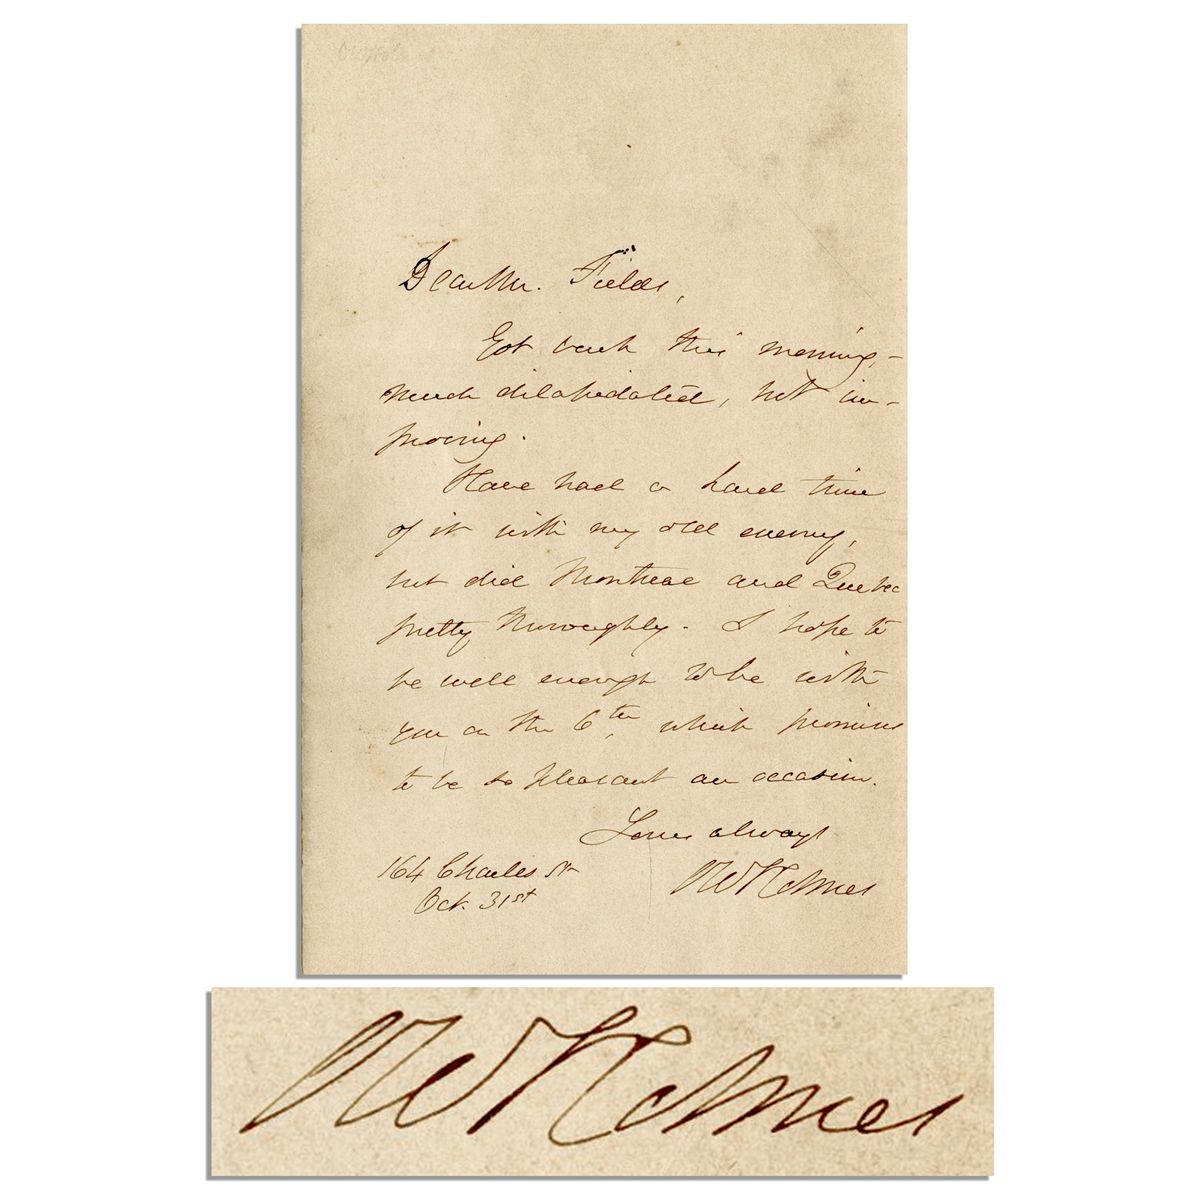 Dear Mr. Fields,
Got back this morning, -
much dilapidated, but im-
proving.
Have had a hard time
of it with my old enemy,
but did Montreal and Quebec
pretty thoroughly. I hope to
be well enough to be with
you on the 6th, which promises
to be so pleasant an occasion.
Yours always
O W Holmes
164 Charles St
Oct. 31st
O W Holmes